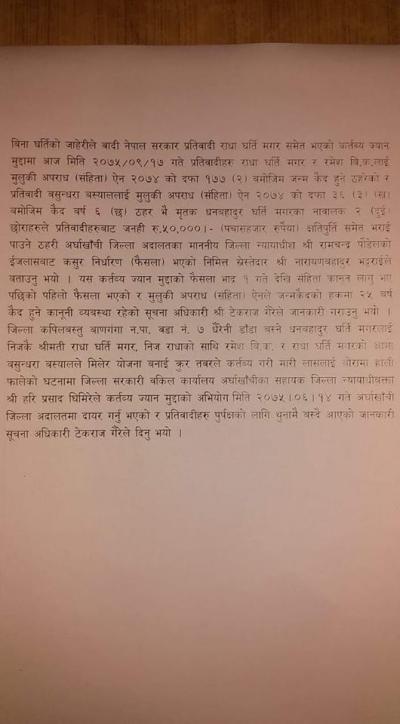 बिना घर्तिको जाहेरीले बादी नेपाल सरकार प्रतिवादी राधा घर्ति मगर समेत भएको कर्तव्य ज्यान
मुद्दामा आज मिति २०७५/०९/१७ गते प्रतिवादीहरु राधा घर्ति मगर र रमेश बि.क.लाई
मुलुकी अपराध (संहिता) ऐन २०७४ को दफा १७७ (२) बमोजिम जन्म कैद हुने ठहरेको र
प्रतिवादी वसुन्धरा बस्याललाई मुलुकी अपराध (संहिता) ऐन २०७४ को दफा ३६ (३) (ख)
बमोजिम कैद वर्ष ६ (छ) ठहर भै मृतक धनबहादुर घर्ति मगरका नावालक २ (दुई)
छोराहरुले प्रतिवादीहरुबाट जनही रु.५०,०००।- (पचासहजार रुपैंया) क्षतिपुर्ति समेत भराई
पाउने ठहरी अर्घाखाँची जिल्ला अदालतका माननीय जिल्ला न्यायाधीश श्री रामचन्द्र पौडेलको
ईजलासबाट कसुर निर्धारण (फैसला) भएको निमित्त स्रेस्तेदार श्री नारायणबहादुर भट्टराईले
बताउनु भयो । यस कर्तव्य ज्यान मुद्दाको फैसला भाद्र १ गते देखि संहिता कानुन लागु भए
पछिको पहिलो फैसला भएको र मुलुकी अपराध (संहिता) ऐनले जन्मकैदको हकमा २५ वर्ष
कैद हुने कानूनी व्यवस्था रहेको सूचना अधिकारी श्री टेकराज गैरेले जानकारी गराउनु भयो ।
जिल्ला कपिलबस्तु बाणगंगा न.पा. वडा नं. ७ धैरेनी डाँडा बस्ने धनबहादुर घर्ति मगरलाई
निजकै श्रीमती राधा घर्ति मगर, निज राधाको साथि रमेश बि.क. र राधा घर्ति मगरको
बसुन्धरा बस्यालले मिलेर योजना बनाई क्रुर तवरले कर्तव्य गरी मारी लासलाई बोरामा हाली
फालेको घटनामा जिल्ला सरकारी वकिल कार्यालय अर्घाखाँचीका सहायक जिल्ला न्यायाधीवक्ता
श्री हरि प्रसाद घिमिरेले कर्तव्य ज्यान मुद्दाको अभियोग मिति २०७५।०६।१४ गते अर्घाखाँची
जिल्ला अदालतमा दायर गर्नु भएको र प्रतिवादीहरु पुर्पक्षको लागि थुनामै बस्दै आएको जानकारी
सूचना अधिकारी टेकराज गैरेले दिनु भयो ।